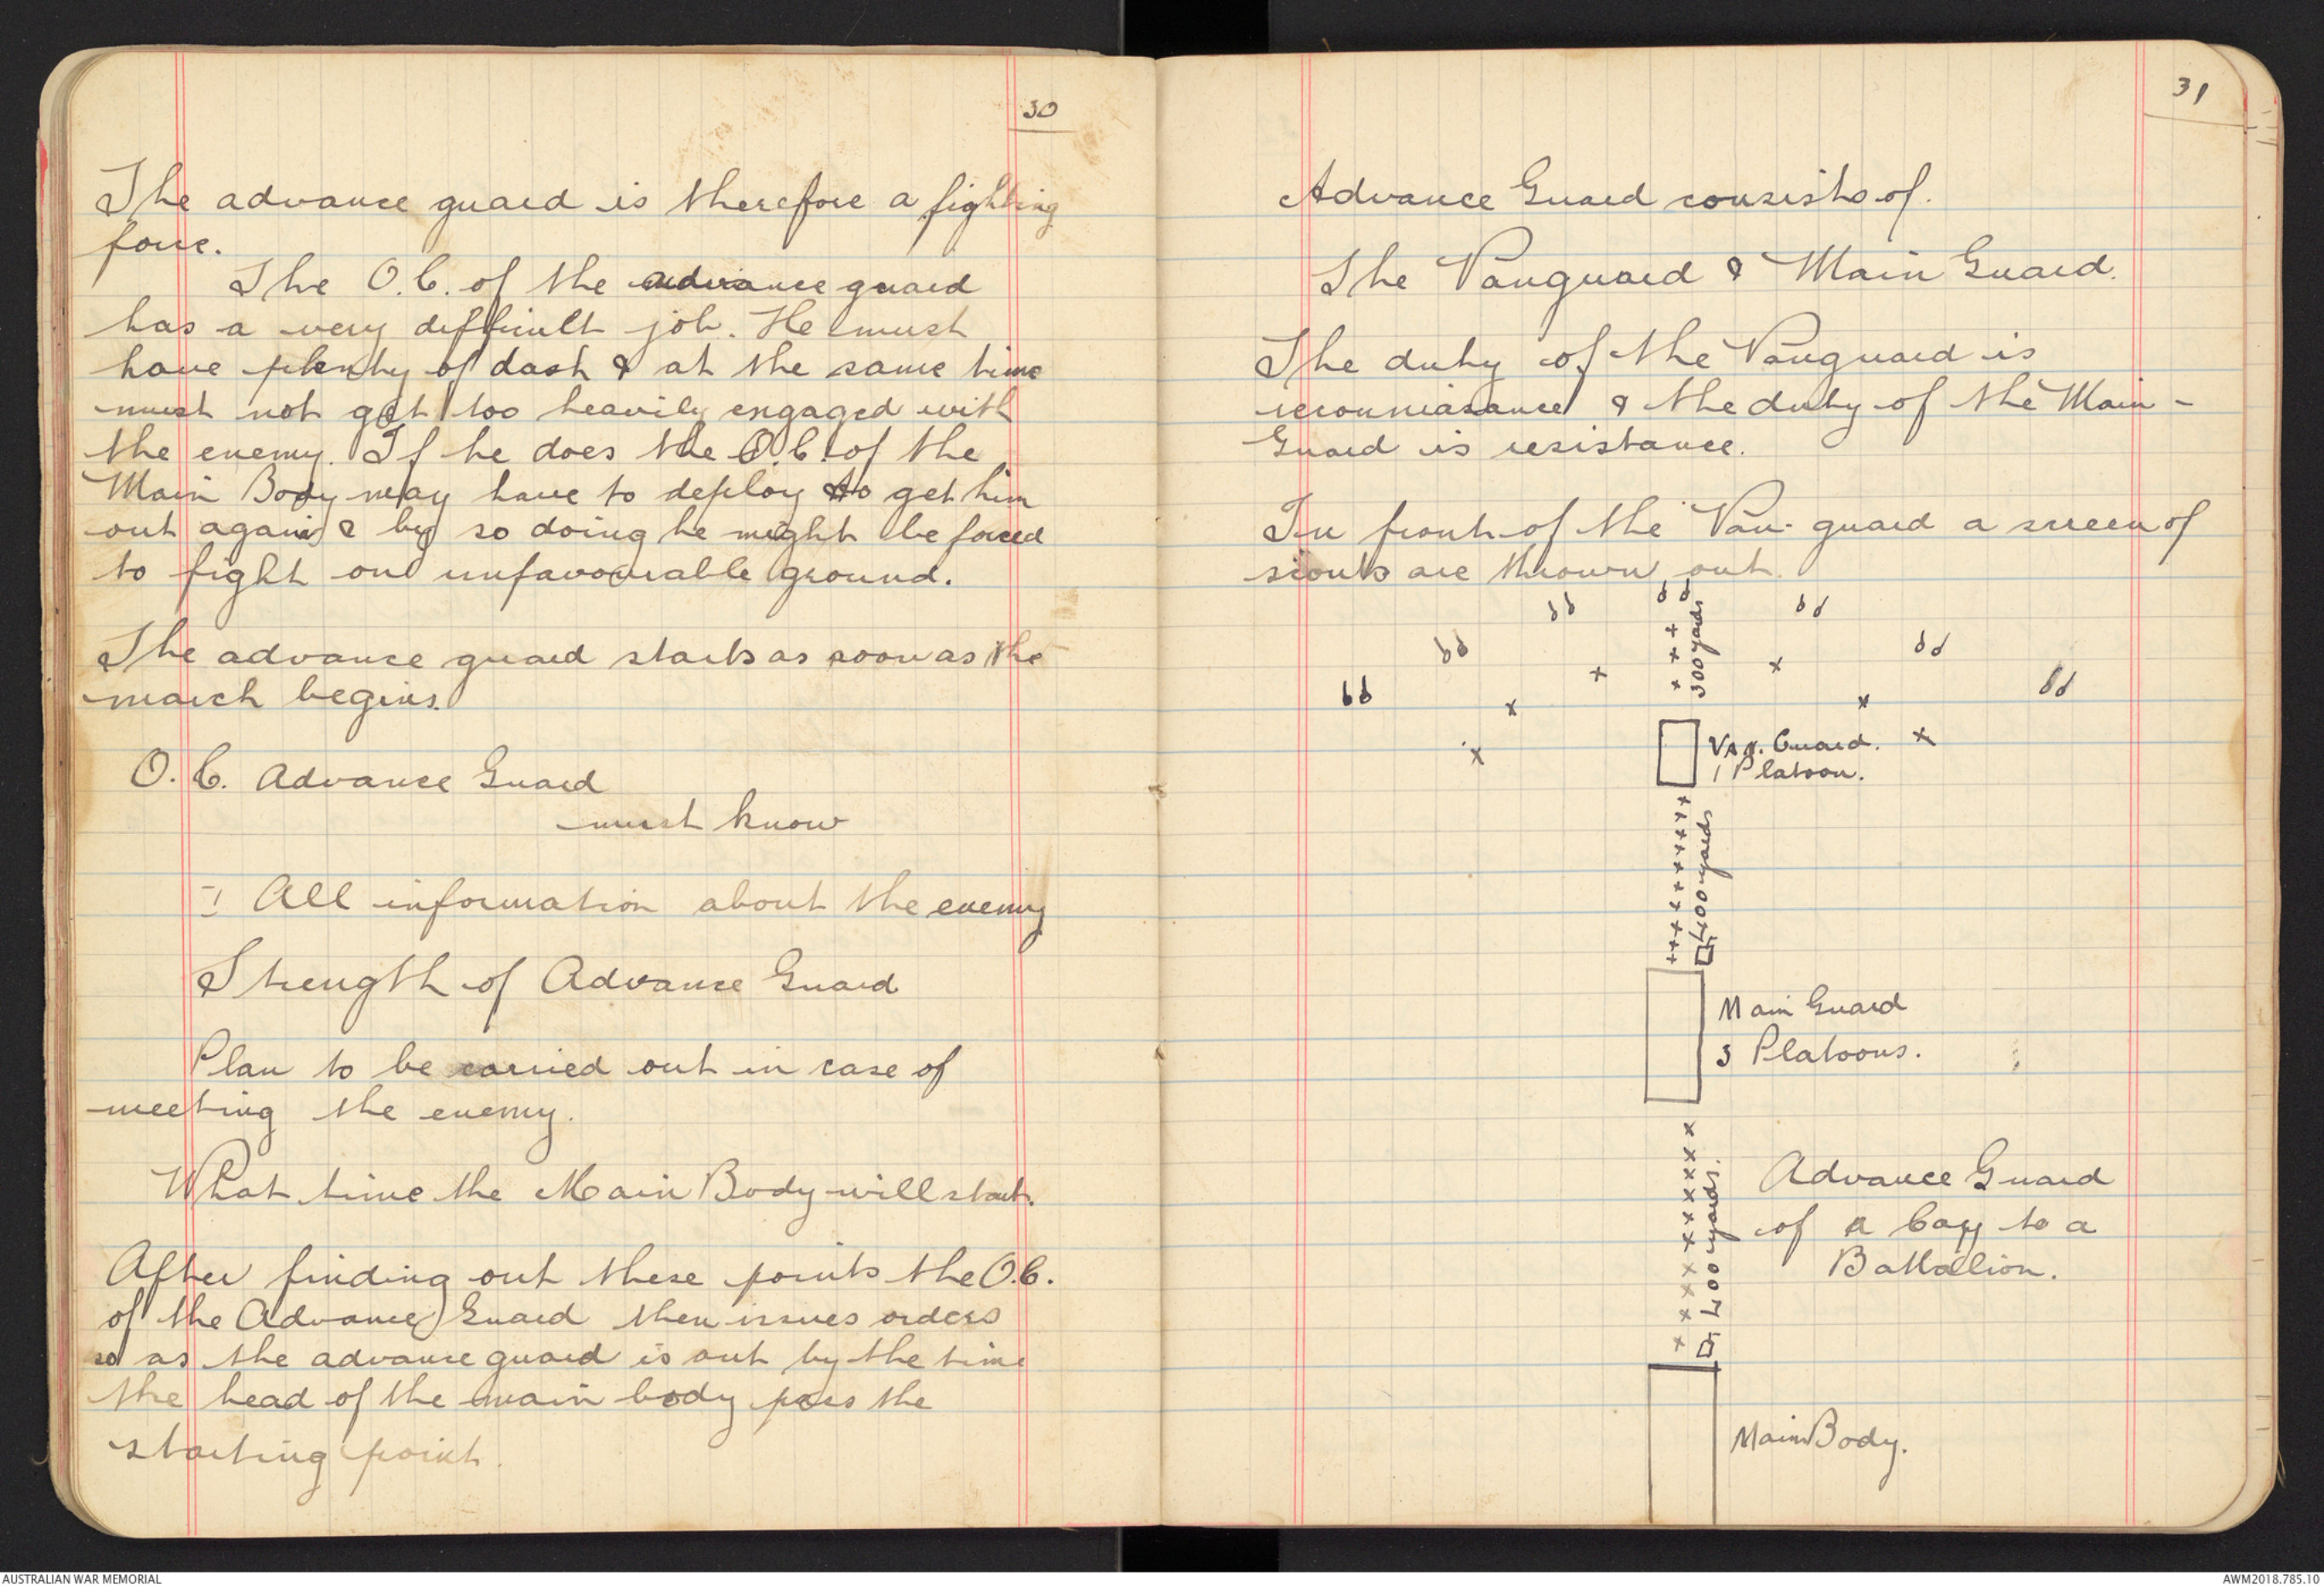 30
The advance guard is therefore a fighting
force.
The O.C. of the advance guard
has a very difficult job. He must
have plenty of dash & at the same time
must not get too heavily engaged with
the enemy. If he does the O.C. of the
Main Body may have to deploy to get him
out again & by so doing he might be forced
to fight on unfavourable ground.
The advance guard starts as soon as the
march begins.
O.C. Advance Guard
must know
All information about the enemy
Strength of Advance Guard
Plan to be carried out in case of
meeting the enemy.
What time the Main Body will start.
After finding out these points the O.C.
of the Advance Guard then issues orders
so as the advance guard is out by the time
the head of the main body pass the
starting point.
31
Advance Guard consists of.
The Vanguard & Main Guard.
The duty of the Vanguard is
reconniasance & the duty of the Main-
Guard is resistance.
In front of the Van-guard a screen of
scouts are thrown out.
300 yards
Van. Guard.
1 Platoon.
400 yards
Main Guard
3 Platoons.
400 yards.
Advance Guard
of a Coy to a
Battalion.
Main Body.
AUSTRALIAN WAR MEMORIAL
AWM2018.785.10